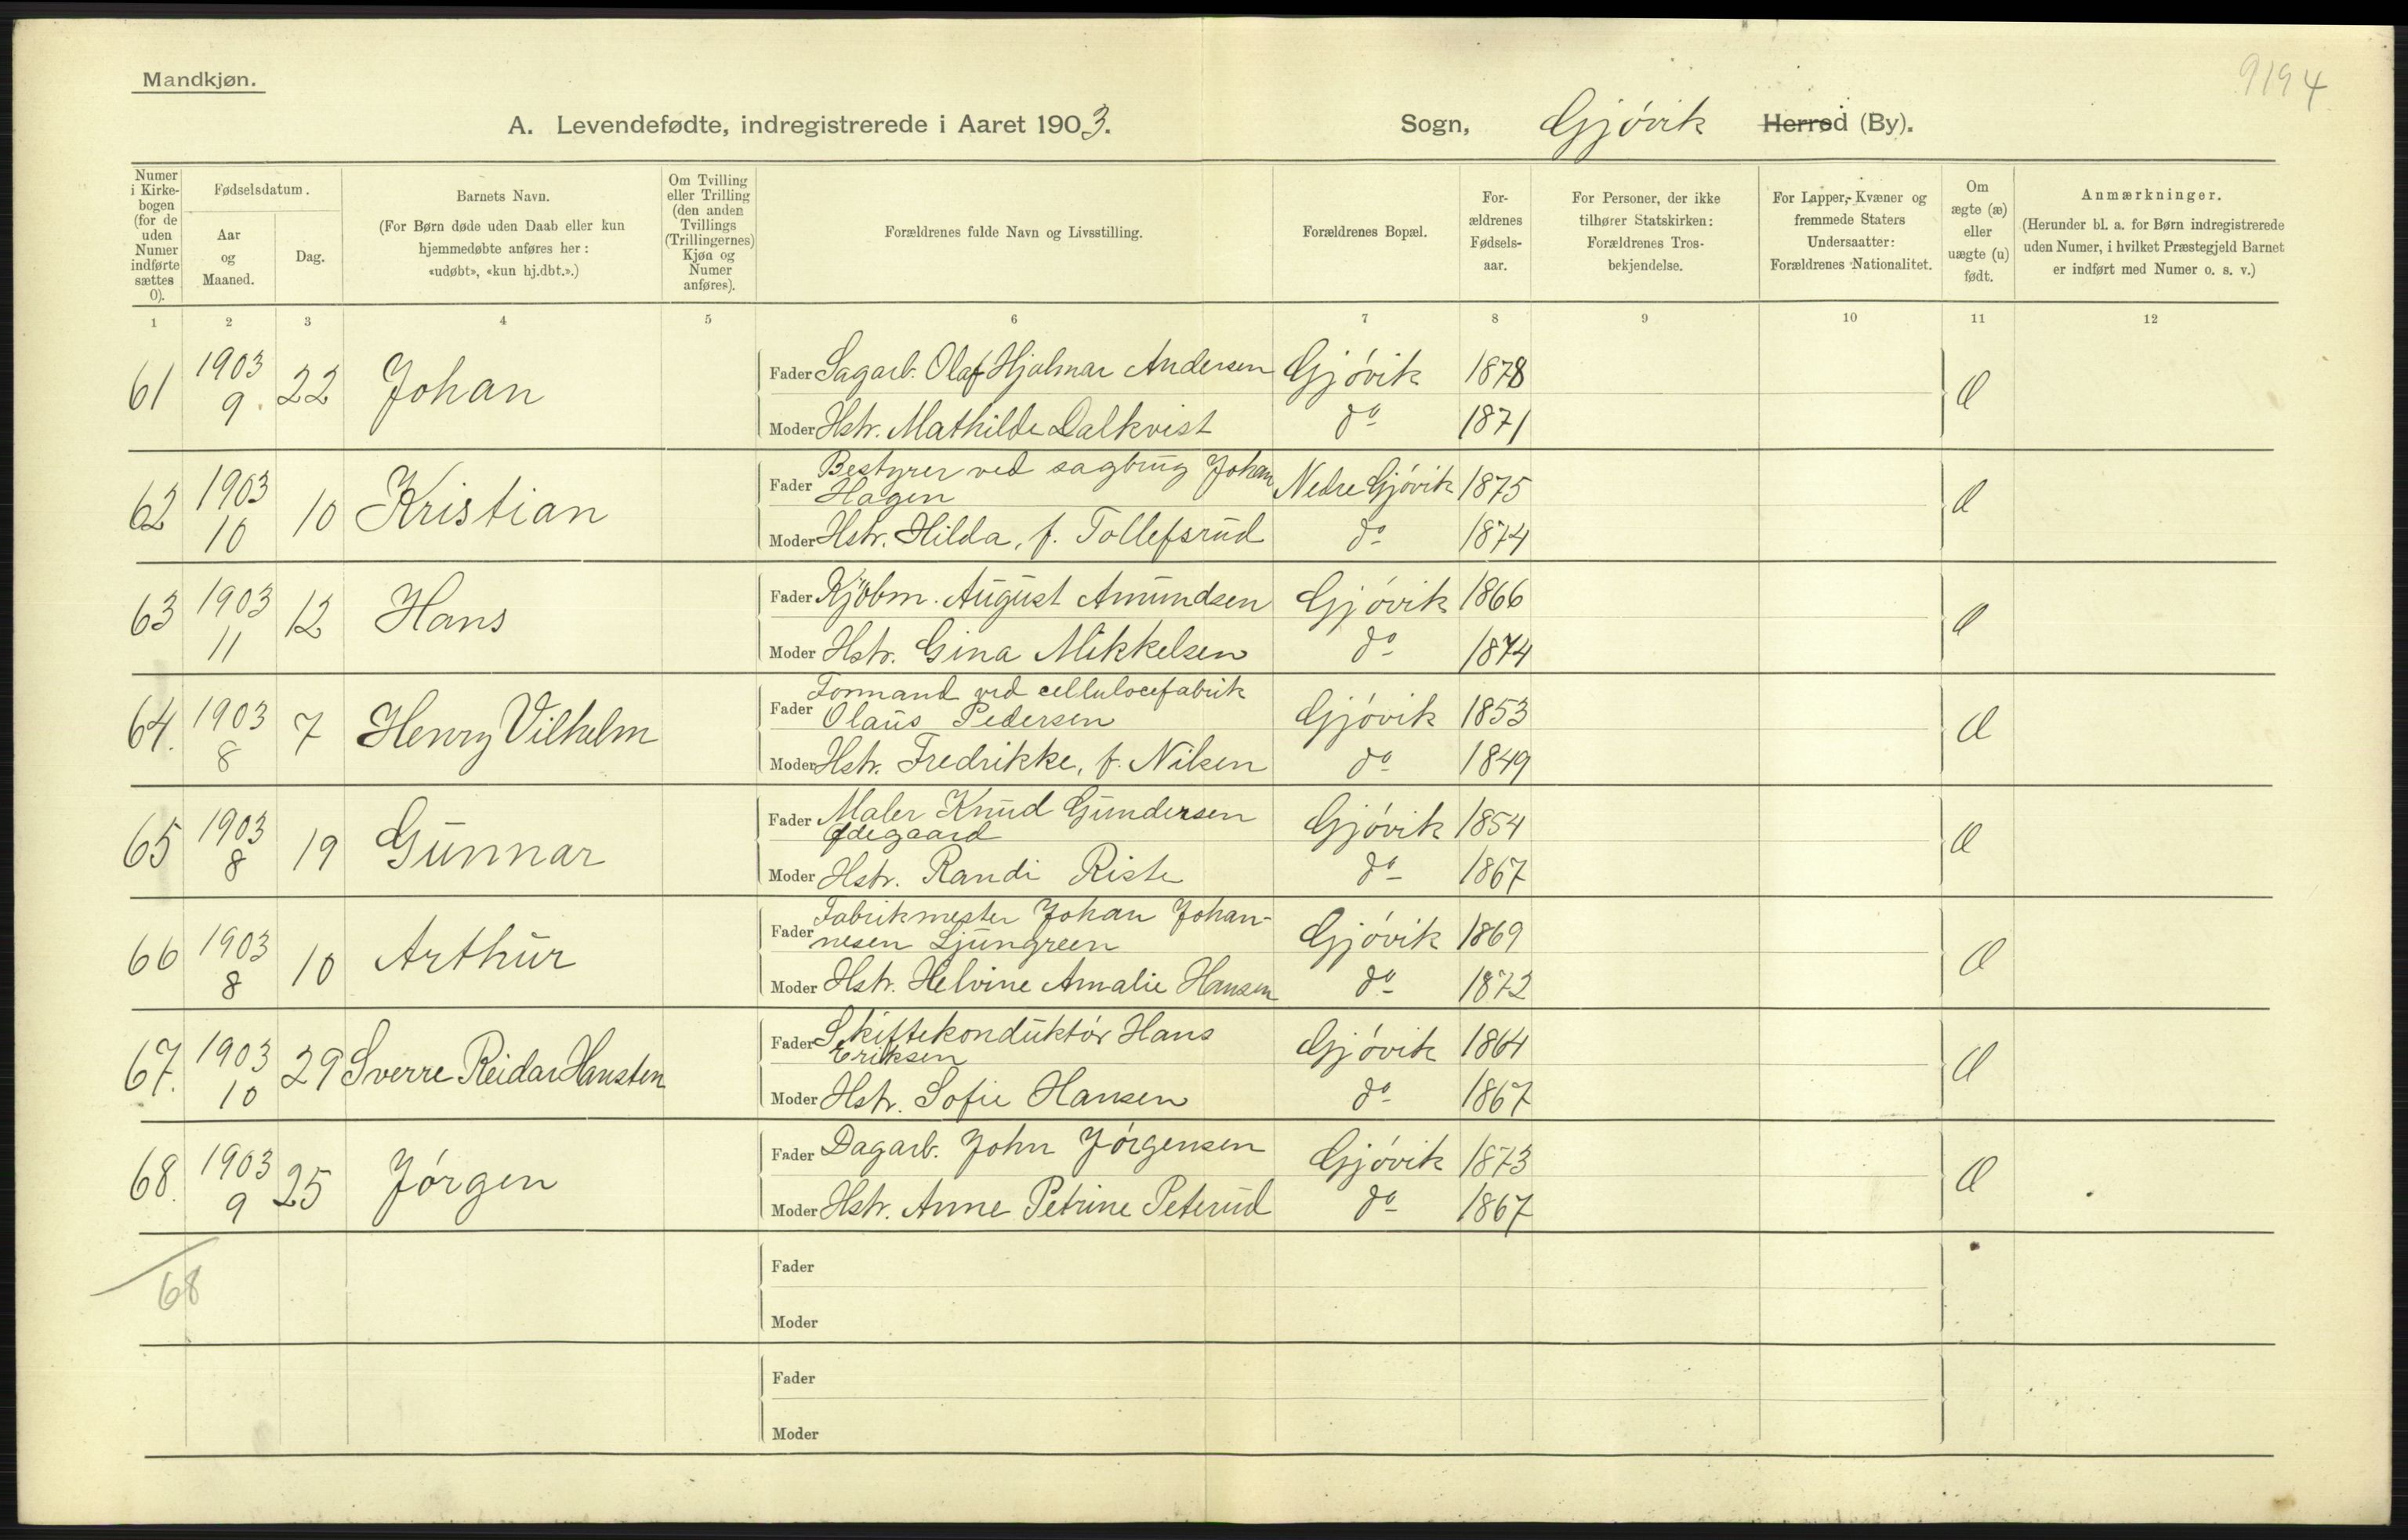 Mandkjøn.
9194
A. Levendefødte, indregistrerede i Aaret 1903. Sogn, Gjövik Herred (By).
Numer i Kirke-bogen (for de uden Numer indførte sættes 0).
Fødselsdatum.
Aar og Maaned.
Dag.
Barnets Navn.
(For Børn døde uden Daab eller kun hjemmedøbte anføres her: «udøbt», «kun hj.dbt.».)
Om Tvilling eller Trilling (den anden Tvillings (Trillingernes) Kjøn og Numer anføres).
Forældrenes fulde Navn og Livsstilling.
Forældrenes Bopæl.
For-ældrenes Fødsels-aar.
For Personer, der ikke tilhører Statskirken: Forældrenes Tros-bekjendelse.
For Lapper, Kvæner og fremmede Staters Undersaatter: Forældrenes Nationalitet.
Om ægte (æ) eller uægte (u) født.
Anmærkninger.
(Herunder bl. a. for Børn indregistrerede uden Numer, i hvilket Præstegjeld Barnet er indført med Numer o. s. v.)
1 2 3 4 5 6 7 8 9 10 11 12
61 1903 9. 22 Johan
Fader Sagarb. Olaf Hjalmar Andersen Gjövik 1878 Æ
Moder Hstr. Mathilde Dalkvist do 1871
62 1903 10 10 Kristian
Fader Bestyrer ved sagbrug Johan
Hagen Nedre Gjövik 1875 Æ
Moder Hstr. Hilda, f. Tollefsrud do 1874
63 1903 11 12 Hans
Fader Kjöbm. August Amundsen Gjövik 1866 Æ
Moder Hstr. Gina Mikkelsen do 1874
64. 1903 8 7 Henry Vilhelm
Fader Formand ved cellulocefabrik
Olaus Pedersen Gjövik 1853 Æ
Moder Hstr. Fredrikke, f. Nilsen do 1849
65 1903 8 19 Gunnar
Fader Maler Knud Gundersen
Ødegaard Gjövik 1854 Æ
Moder Hstr. Randi Riste do 1867
66 1903 8 10 Arthur
Fader Fabrikmester Johan Johan-
nesen Ljungreen Gjövik 1869 Æ
Moder Hstr. Helvine Amalie Hansen do 1872
67. 1903 10 29 Sverre Reidar Hansten
Fader Skiftekonduktör Hans
Eriksen Gjövik 1864 Æ
Moder Hstr. Sofie Hansen do 1867
68. 1903 9 25 Jörgen
Fader Dagarb. John Jörgensen Gjövik 1873 Æ
Moder Hstr. Anne Petrine Peterud do 1867
68
Fader
Moder
Fader
Moder